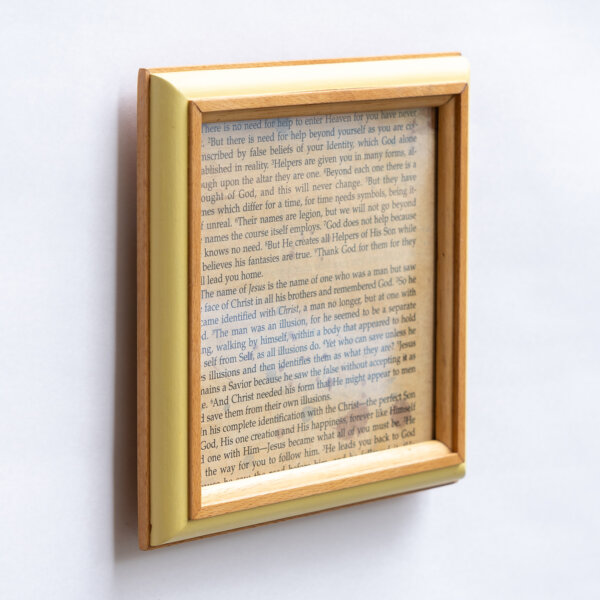 here is no need for help to enter Heaven for you have never
. ²But there is need for help beyond yourself as you are cir-
mscribed by false beliefs of your Identity, which God alone
ablished in reality. ³Helpers are given you in many forms, al-
ough upon the altar they are one. ⁴Beyond each one there is a
ought of God, and this will never change. ⁵But they have
mes which differ for a time, for time needs symbols, being it-
f unreal. ⁶Their names are legion, but we will not go beyond
names the course itself employs. ⁷God does not help because
knows no need. ⁸But He creates all Helpers of His Son while
believes his fantasies are true. ⁹Thank God for them for they
ll lead you home.
The name of Jesus is the name of one who was a man but saw
face of Christ in all his brothers and remembered God. ²So he
came identified with Christ, a man no longer, but at one with
d. ³The man was an illusion, for he seemed to be a separate
ng, walking by himself, within a body that appeared to hold
self from Self, as all illusions do. ⁴Yet who can save unless he
s illusions and then identifies them as what they are? ⁵Jesus
mains a Savior because he saw the false without accepting it as
e. ⁶And Christ needed his form that He might appear to men
d save them from their own illusions.
In his complete identification with the Christ—the perfect Son
God, His one creation and His happiness, forever like Himself
d one with Him—Jesus became what all of you must be. ²He
the way for you to follow him. ³He leads you back to God
he saw the road before him, and he followed it.